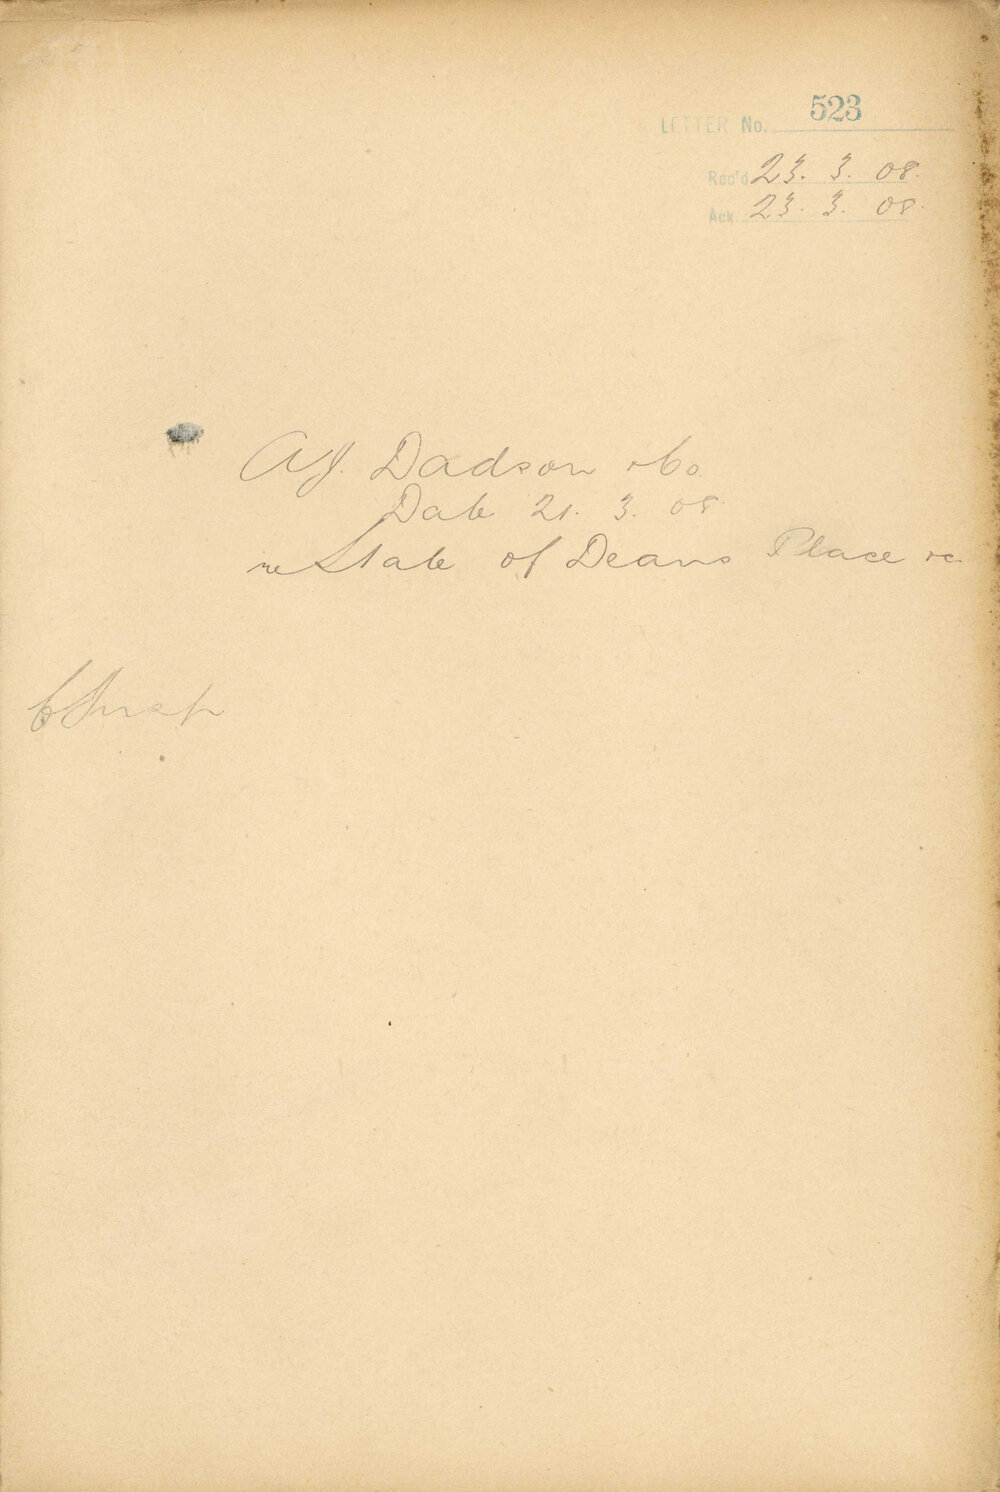 LETTER No. 523
Rec'd 23. 3. 08.
Ack 23. 3. 08.
A.J. Dadson & Co.
Date 21. 3. 08.
re State of Deans Place &c